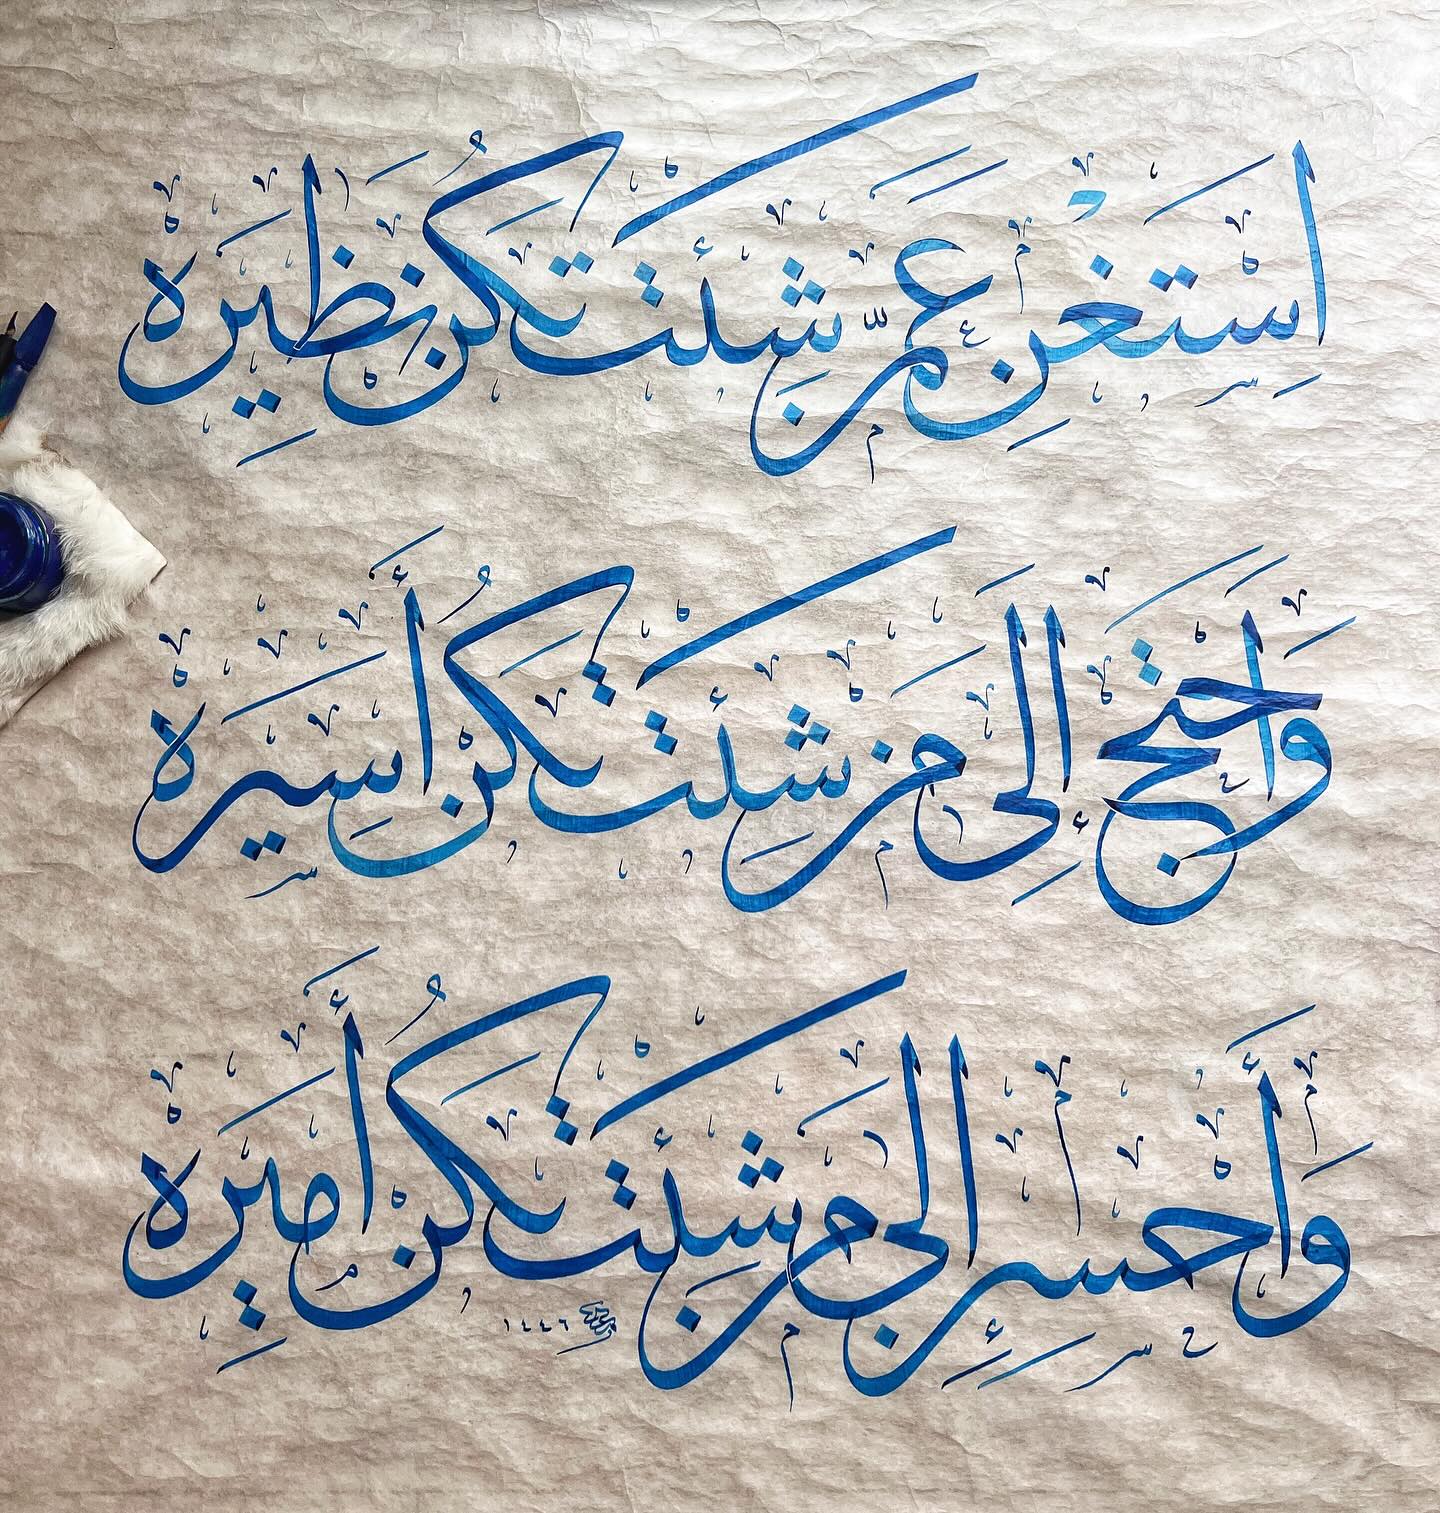 اِسْتَغْنِ عَمَّنْ شِئْتَ تَكُنْ نَظِيْرَهُ
وَاحْتَجْ إِلَى مَنْ شِئْتَ تَكُنْ أَسِيْرَهُ
وَأَحْسِنْ إِلَى مَنْ شِئْتَ تَكُنْ أَمِيْرَهُ
١٤٤٦